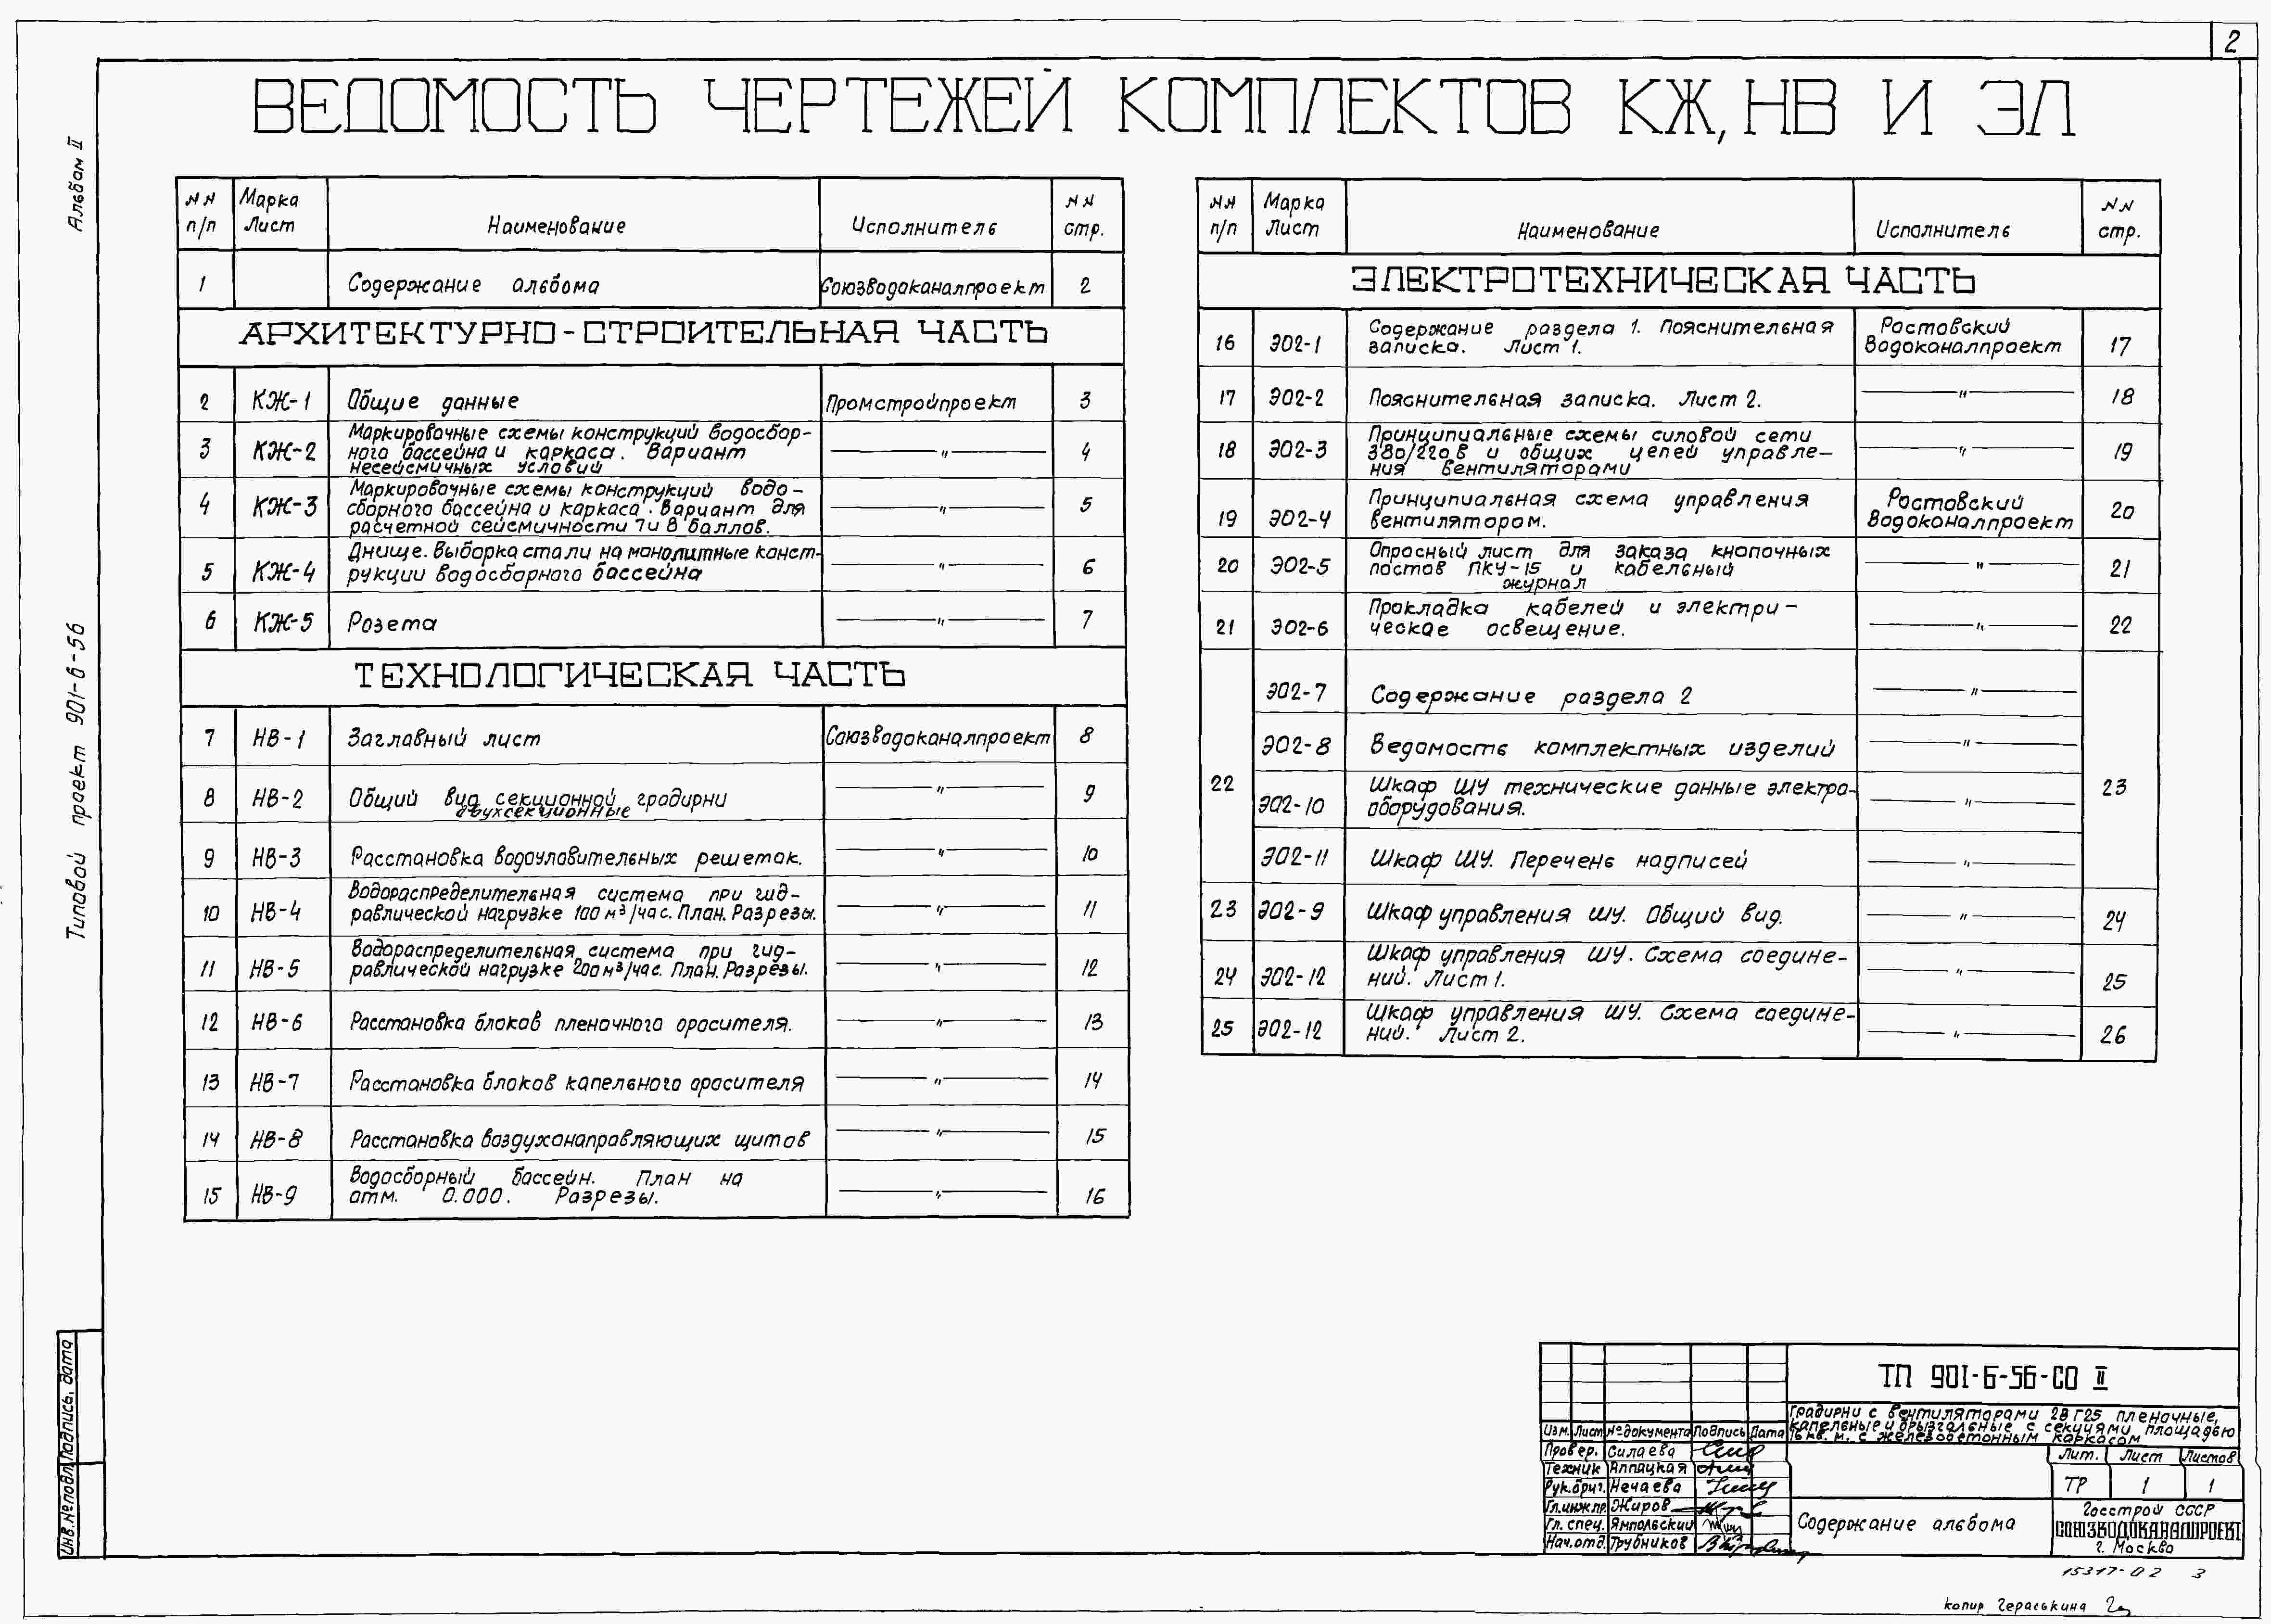 2
ВЕДОМОСТЬ ЧЕРТЕЖЕЙ КОМПЛЕКТОВ КЖ, НВ И ЭЛ
Альбом II
Типовой проект 901-6-56
Инв.№подл. Подпись, дата
NN п/п Марка Лист Наименование Исполнитель NN стр.
1 Содержание альбома Союзводоканалпроект 2
АРХИТЕКТУРНО-СТРОИТЕЛЬНАЯ ЧАСТЬ
2 КЖ-1 Общие данные Промстройпроект 3
3 КЖ-2 Маркировочные схемы конструкций водосбор-
ного бассейна и каркаса. Вариант
несейсмичных условий — " — 4
4 КЖ-3 Маркировочные схемы конструкций водо-
сборного бассейна и каркаса. Вариант для
расчетной сейсмичности 7 и 8 баллов. — " — 5
5 КЖ-4 Днище. Выборка стали на монолитные конст-
рукции водосборного бассейна — " — 6
6 КЖ-5 Розета — " — 7
ТЕХНОЛОГИЧЕСКАЯ ЧАСТЬ
7 НВ-1 Заглавный лист Союзводоканалпроект 8
8 НВ-2 Общий вид секционной градирни
двухсекционные — " — 9
9 НВ-3 Расстановка водоуловительных решеток. — " — 10
10 НВ-4 Водораспределительная система при гид-
равлической нагрузке 100 м³/час. План. Разрезы. — " — 11
11 НВ-5 Водораспределительная система при гид-
равлической нагрузке 200 м³/час. План. Разрезы. — " — 12
12 НВ-6 Расстановка блоков пленочного оросителя. — " — 13
13 НВ-7 Расстановка блоков капельного оросителя — " — 14
14 НВ-8 Расстановка воздухонаправляющих щитов — " — 15
15 НВ-9 Водосборный бассейн. План на
отм. 0.000. Разрезы. — " — 16
NN п/п Марка Лист Наименование Исполнитель NN стр.
ЭЛЕКТРОТЕХНИЧЕСКАЯ ЧАСТЬ
16 ЭО2-1 Содержание раздела 1. Пояснительная
записка. Лист 1. Ростовский Водоканалпроект 17
17 ЭО2-2 Пояснительная записка. Лист 2. — " — 18
18 ЭО2-3 Принципиальные схемы силовой сети
380/220 в и общих цепей управле-
ния вентиляторами — " — 19
19 ЭО2-4 Принципиальная схема управления
вентилятором. Ростовский Водоканалпроект 20
20 ЭО2-5 Опросный лист для заказа кнопочных
постов ПКУ-15 и кабельный
журнал — " — 21
21 ЭО2-6 Прокладка кабелей и электри-
ческое освещение. — " — 22
22 ЭО2-7 Содержание раздела 2 — " — 23
ЭО2-8 Ведомость комплектных изделий — " —
ЭО2-10 Шкаф ШУ технические данные электро-
оборудования. — " —
ЭО2-11 Шкаф ШУ. Перечень надписей — " —
23 ЭО2-9 Шкаф управления ШУ. Общий вид. — " — 24
24 ЭО2-12 Шкаф управления ШУ. Схема соедине-
ний. Лист 1. — " — 25
25 ЭО2-12 Шкаф управления ШУ. Схема соедине-
ний. Лист 2. — " — 26
ТП 901-6-56-СО II
Градирни с вентиляторами 2ВГ25 пленочные,
капельные и брызгальные с секциями площадью
16 кв. м. с железобетонным каркасом
Изм. Лист №документа Подпись Дата
Провер. Силаева
Техник Алпацкая
Рук.бриг. Нечаева
Гл.инж.пр. Жиров
Гл. спец. Ямпольский
Нач.отд. Трубников
Лит. Лист Листов
ТР 1 1
Содержание альбома
Госстрой СССР
СОЮЗВОДОКАНАЛПРОЕКТ
г. Москва
15317-02 3
копир Гераськина